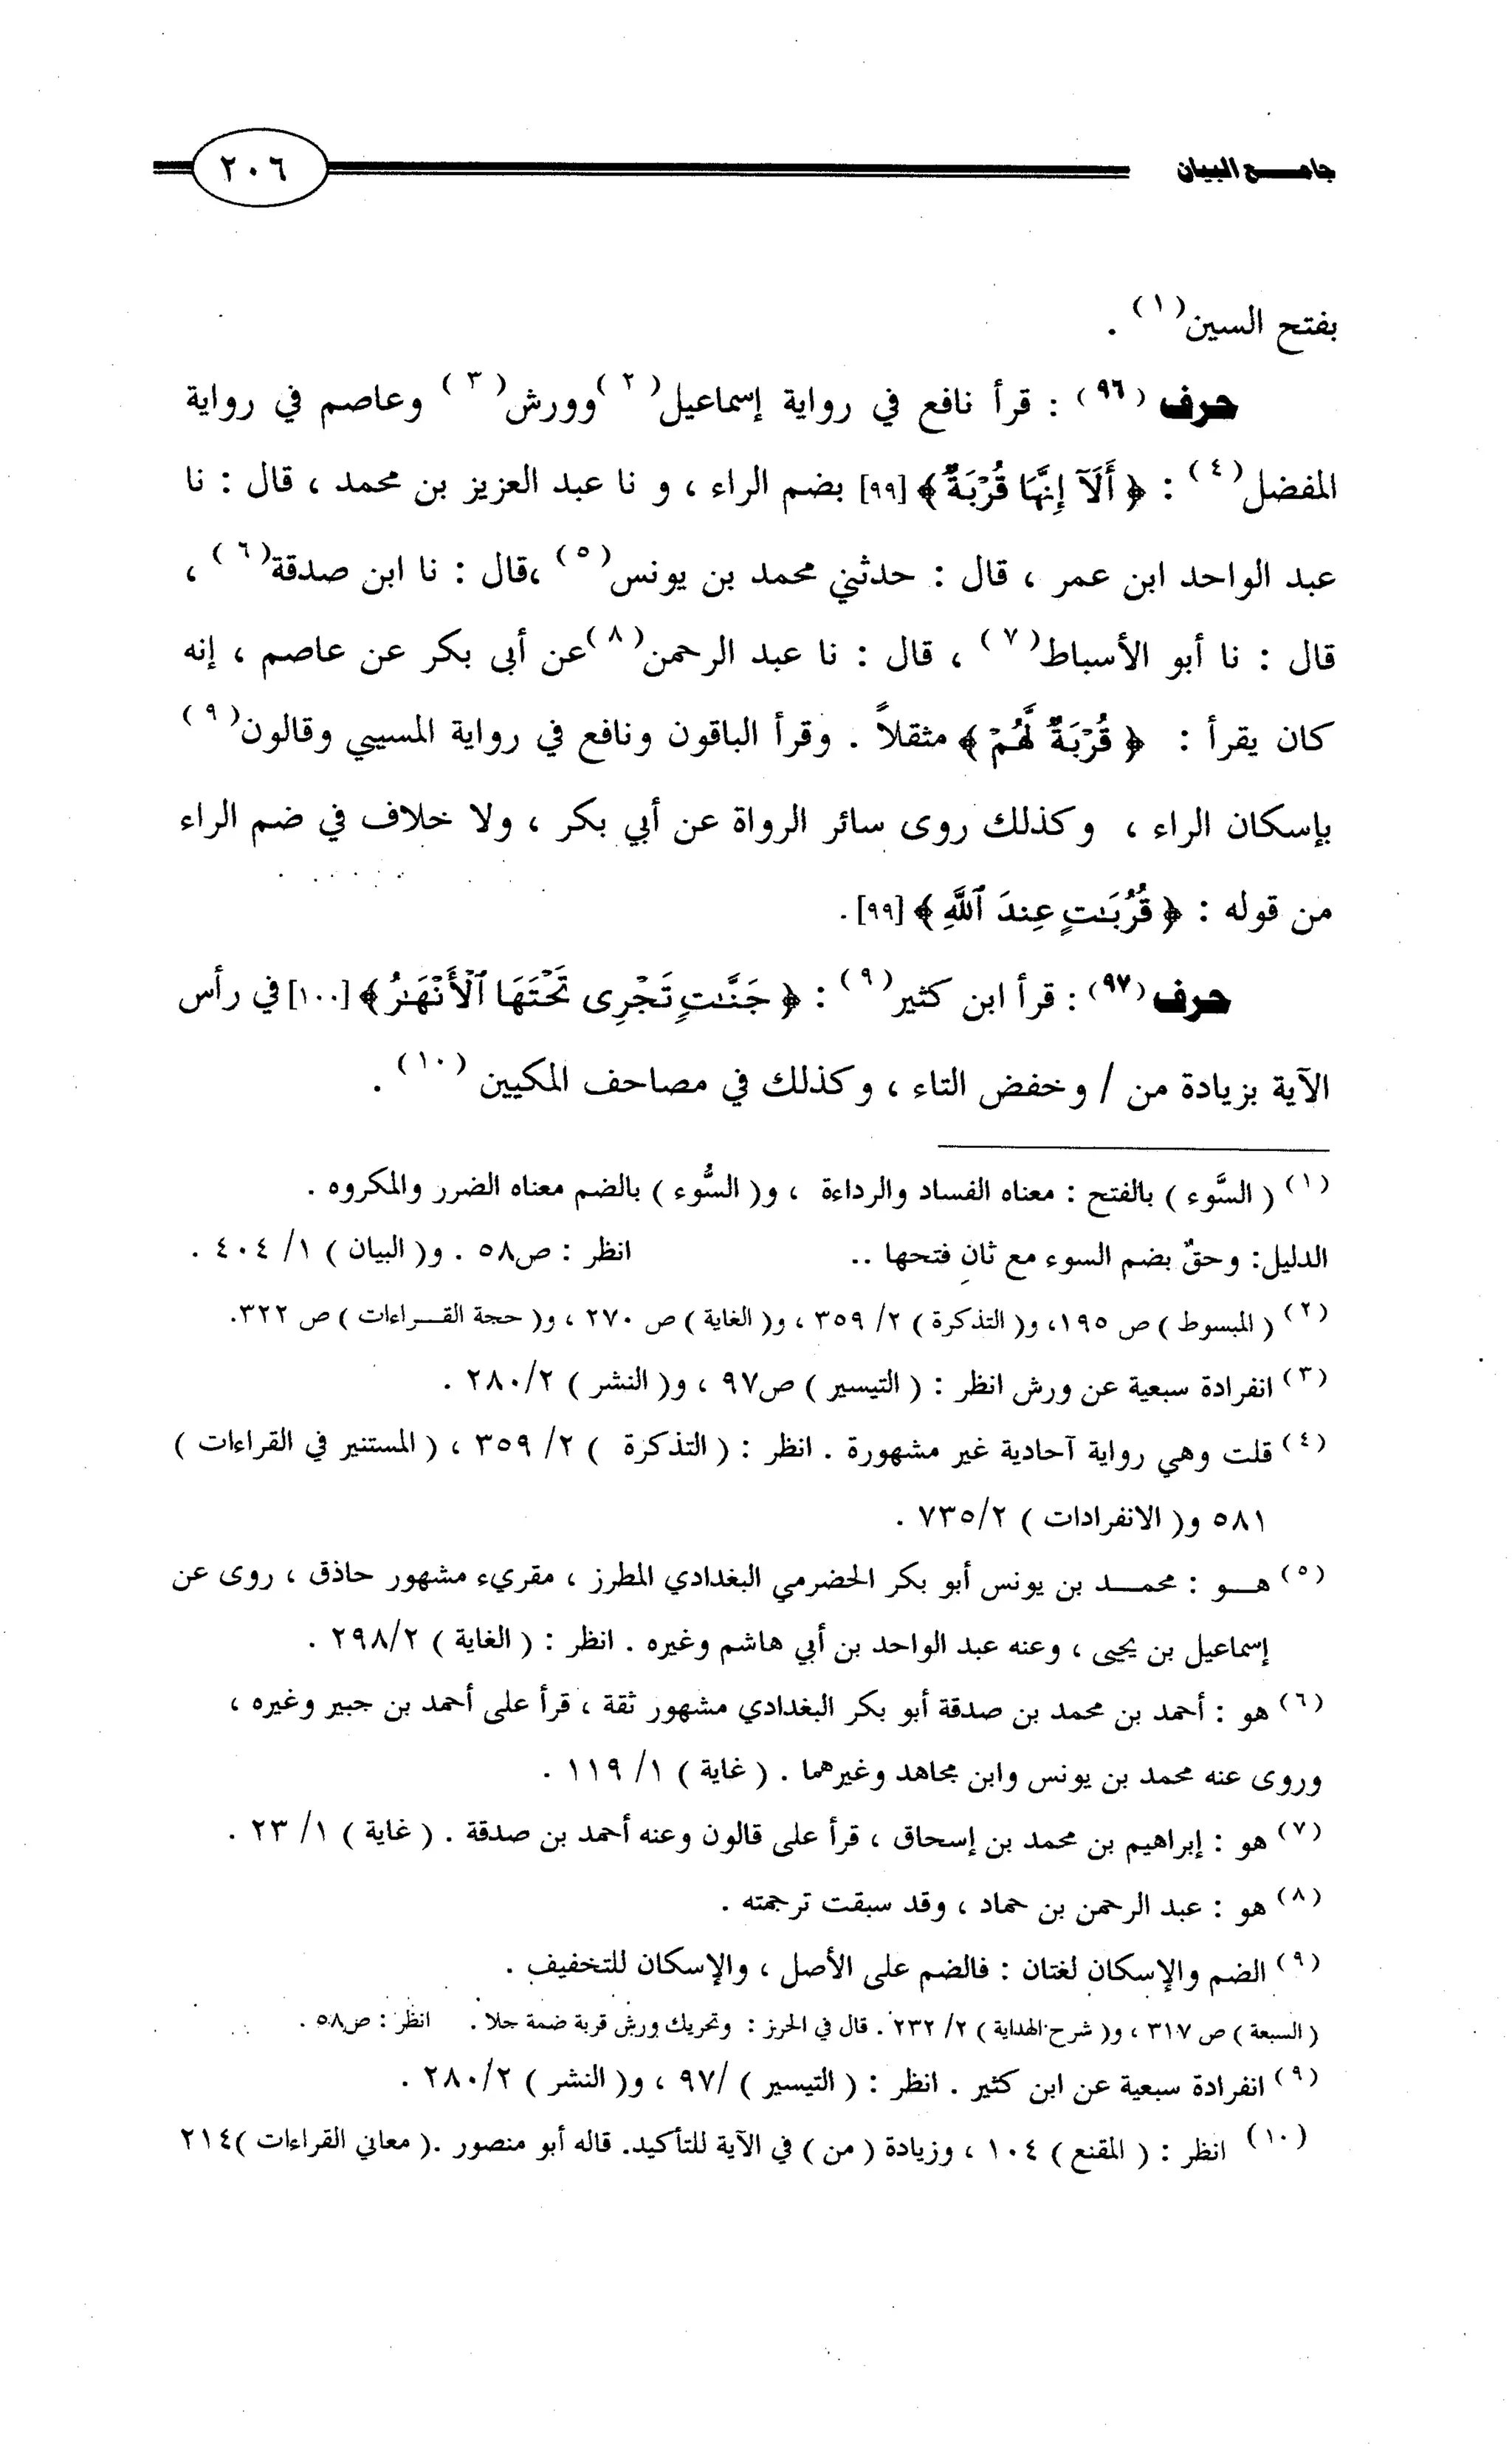 جامع البيان
٢٠٦
بفتح السين(١) .
حرف (٩٦) : قرأ نافع في رواية إسماعيل(٢) وورش(٣) وعاصم في رواية
المفضل(٤) : ﴿ أَلَآ إِنَّهَا قُرْبَةٌ ﴾ [٩٩] بضم الراء ، و نا عبد العزيز بن محمد ، قال : نا
عبد الواحد ابن عمر ، قال : حدثني محمد بن يونس(٥) ،قال : نا ابن صدقة(٦) ،
قال : نا أبو الأسباط(٧) ، قال : نا عبد الرحمن(٨) عن أبى بكر عن عاصم ، إنه
كان يقرأ : ﴿ قُرْبَةٌ لَّهُمْ ﴾ مثقلاً . وقرأ الباقون ونافع في رواية المسيبي وقالون(٩)
بإسكان الراء ، وكذلك روى سائر الرواة عن أبي بكر ، ولا خلاف في ضم الراء
من قوله : ﴿ قُرُبَـٰتٍ عِندَ ٱللَّهِ ﴾ [٩٩].
حرف (٩٧) : قرأ ابن كثير(٩) : ﴿ جَنَّـٰتٍ تَجْرِى تَحْتَهَا ٱلْأَنْهَـٰرُ ﴾ [١٠٠] في رأس
الآية بزيادة من / وخفض التاء ، وكذلك في مصاحف المكيين (١٠) .
(١) ( السَّوء ) بالفتح : معناه الفساد والرداءة ، و( السُّوء ) بالضم معناه الضرر والمكروه .
الدليل: وحقٌ بضم السوء مع ثانٍ فتحها .. انظر : ص٥٨ . و( البيان ) ١/ ٤٠٤ .
(٢) ( المبسوط ) ص ١٩٥، و( التذكرة ) ٢/ ٣٥٩ ، و( الغاية ) ص ٢٧٠ ، و( حجة القـراءات ) ص ٣٢٢.
(٣) انفرادة سبعية عن ورش انظر : ( التيسير ) ص٩٧ ، و( النشر ) ٢/ ٢٨٠ .
(٤) قلت وهي رواية آحادية غير مشهورة . انظر : ( التذكرة ) ٢/ ٣٥٩ ، ( المستنير في القراءات )
٥٨١ و( الانفرادات ) ٢/ ٧٣٥ .
(٥) هـو : محمـد بن يونس أبو بكر الحضرمي البغدادي المطرز ، مقريء مشهور حاذق ، روى عن
إسماعيل بن يحيى ، وعنه عبد الواحد بن أبي هاشم وغيره . انظر : ( الغاية ) ٢/ ٢٩٨ .
(٦) هو : أحمد بن محمد بن صدقة أبو بكر البغدادي مشهور ثقة ، قرأ على أحمد بن جبير وغيره ،
وروى عنه محمد بن يونس وابن مجاهد وغيرهما . ( غاية ) ١/ ١١٩ .
(٧) هو : إبراهيم بن محمد بن إسحاق ، قرأ على قالون وعنه أحمد بن صدقة . ( غاية ) ١/ ٢٣ .
(٨) هو : عبد الرحمن بن حماد ، وقد سبقت ترجمته .
(٩) الضم والإسكان لغتان : فالضم على الأصل ، والإسكان للتخفيف .
( السبعة ) ص ٣١٧ ، و( شرح الهداية ) ٢/ ٢٣٢ . قال في الحرز : وتحريك ورش قربة ضمة حلا . انظر : ص٥٨ .
(٩) انفرادة سبعية عن ابن كثير . انظر : ( التيسير ) /٩٧ ، و( النشر ) ٢/ ٢٨٠ .
(١٠) انظر : ( المقنع ) ١٠٤ ، وزيادة ( من ) في الآية للتأكيد. قاله أبو منصور .( معاني القراءات )٢١٤